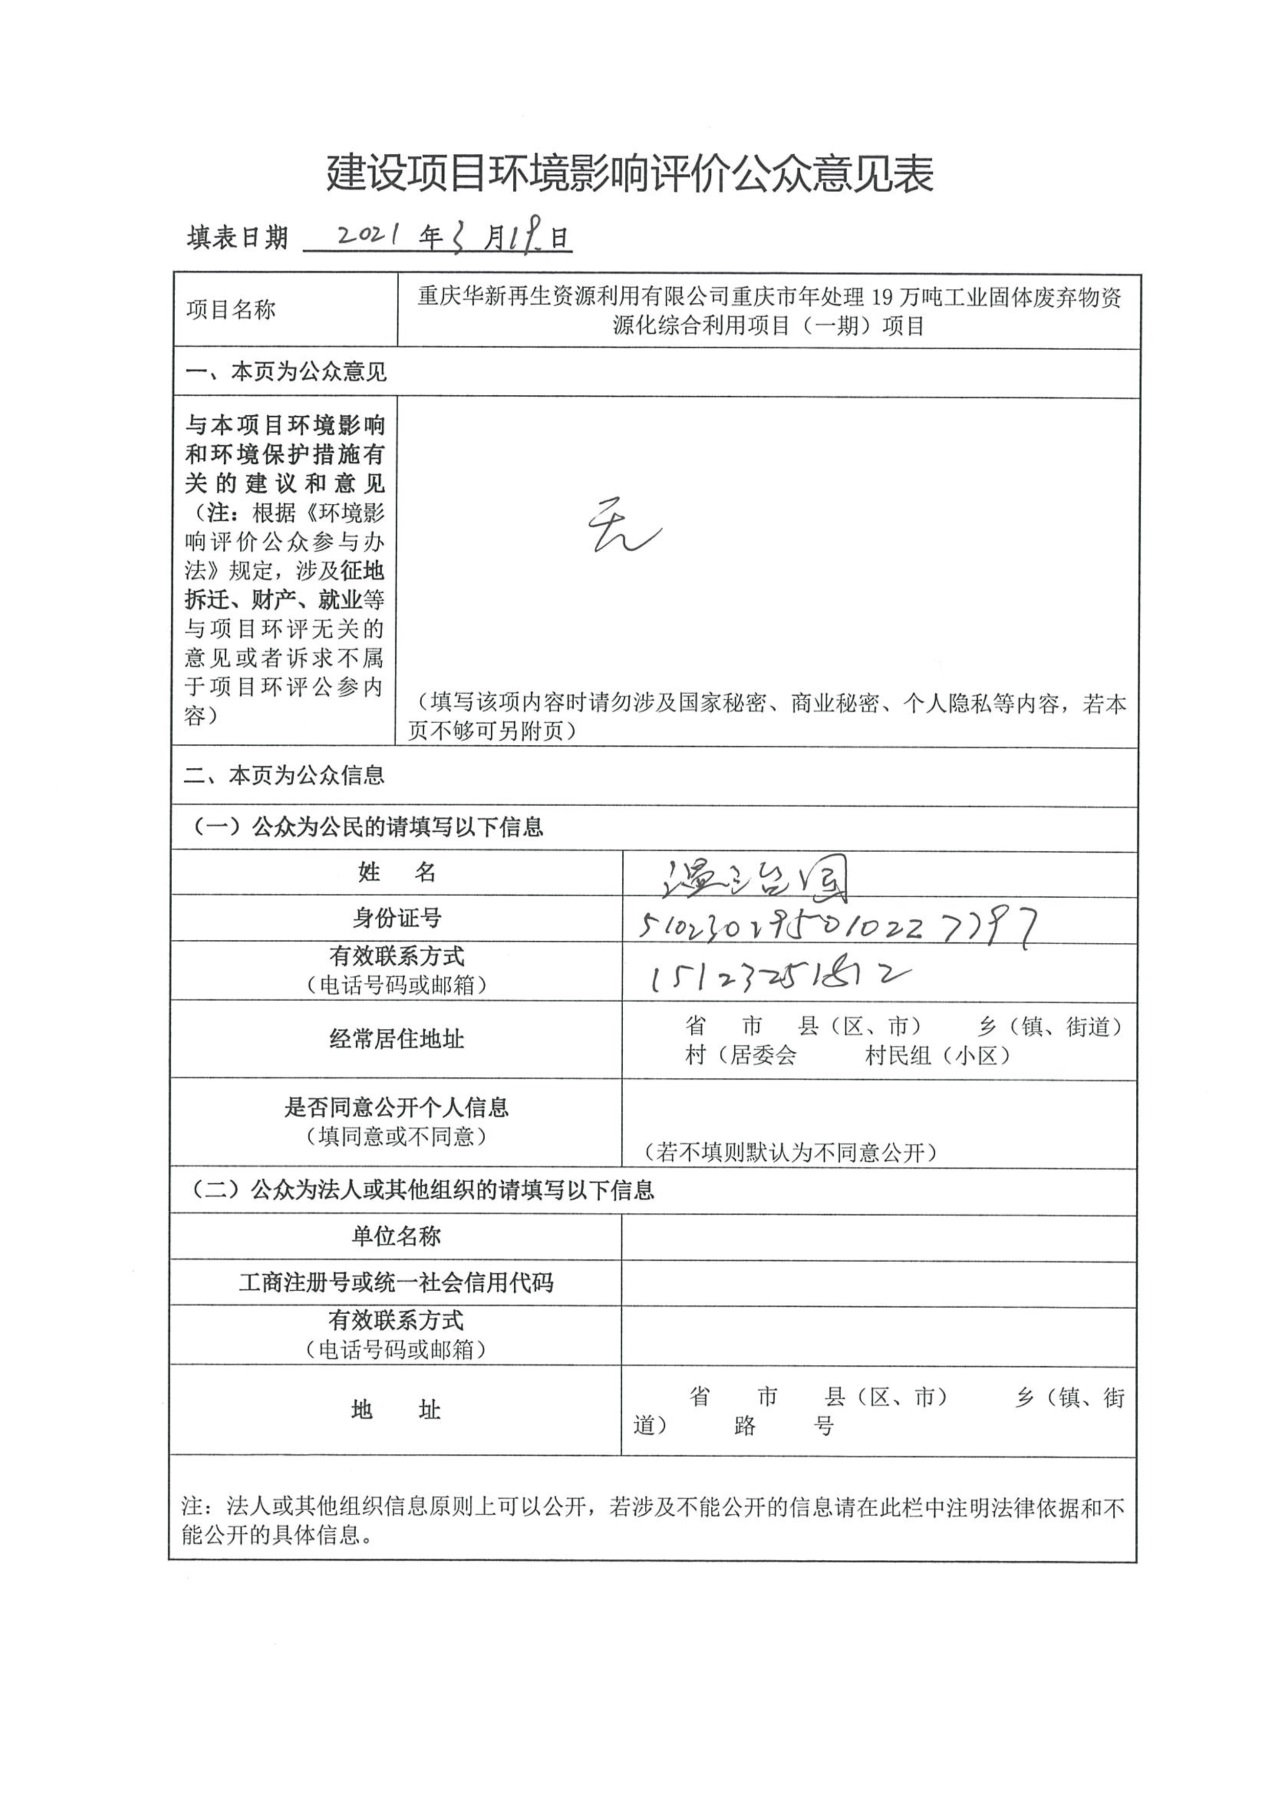 建设项目环境影响评价公众意见表
填表日期 2021 年 3 月 19 日
项目名称
重庆华新再生资源利用有限公司重庆市年处理 19 万吨工业固体废弃物资
源化综合利用项目（一期）项目
一、本页为公众意见
与本项目环境影响
和环境保护措施有
关的建议和意见
（注：根据《环境影
响评价公众参与办
法》规定，涉及征地
拆迁、财产、就业等
与项目环评无关的
意见或者诉求不属
于项目环评公参内
容）
无
（填写该项内容时请勿涉及国家秘密、商业秘密、个人隐私等内容，若本
页不够可另附页）
二、本页为公众信息
（一）公众为公民的请填写以下信息
姓 名
温治国
身份证号
有效联系方式
（电话号码或邮箱）
15123251812
经常居住地址
省 市 县（区、市） 乡（镇、街道）
村（居委会 村民组（小区）
是否同意公开个人信息
（填同意或不同意）
（若不填则默认为不同意公开）
（二）公众为法人或其他组织的请填写以下信息
单位名称
工商注册号或统一社会信用代码
有效联系方式
（电话号码或邮箱）
地 址
省 市 县（区、市） 乡（镇、街
道） 路 号
注：法人或其他组织信息原则上可以公开，若涉及不能公开的信息请在此栏中注明法律依据和不
能公开的具体信息。